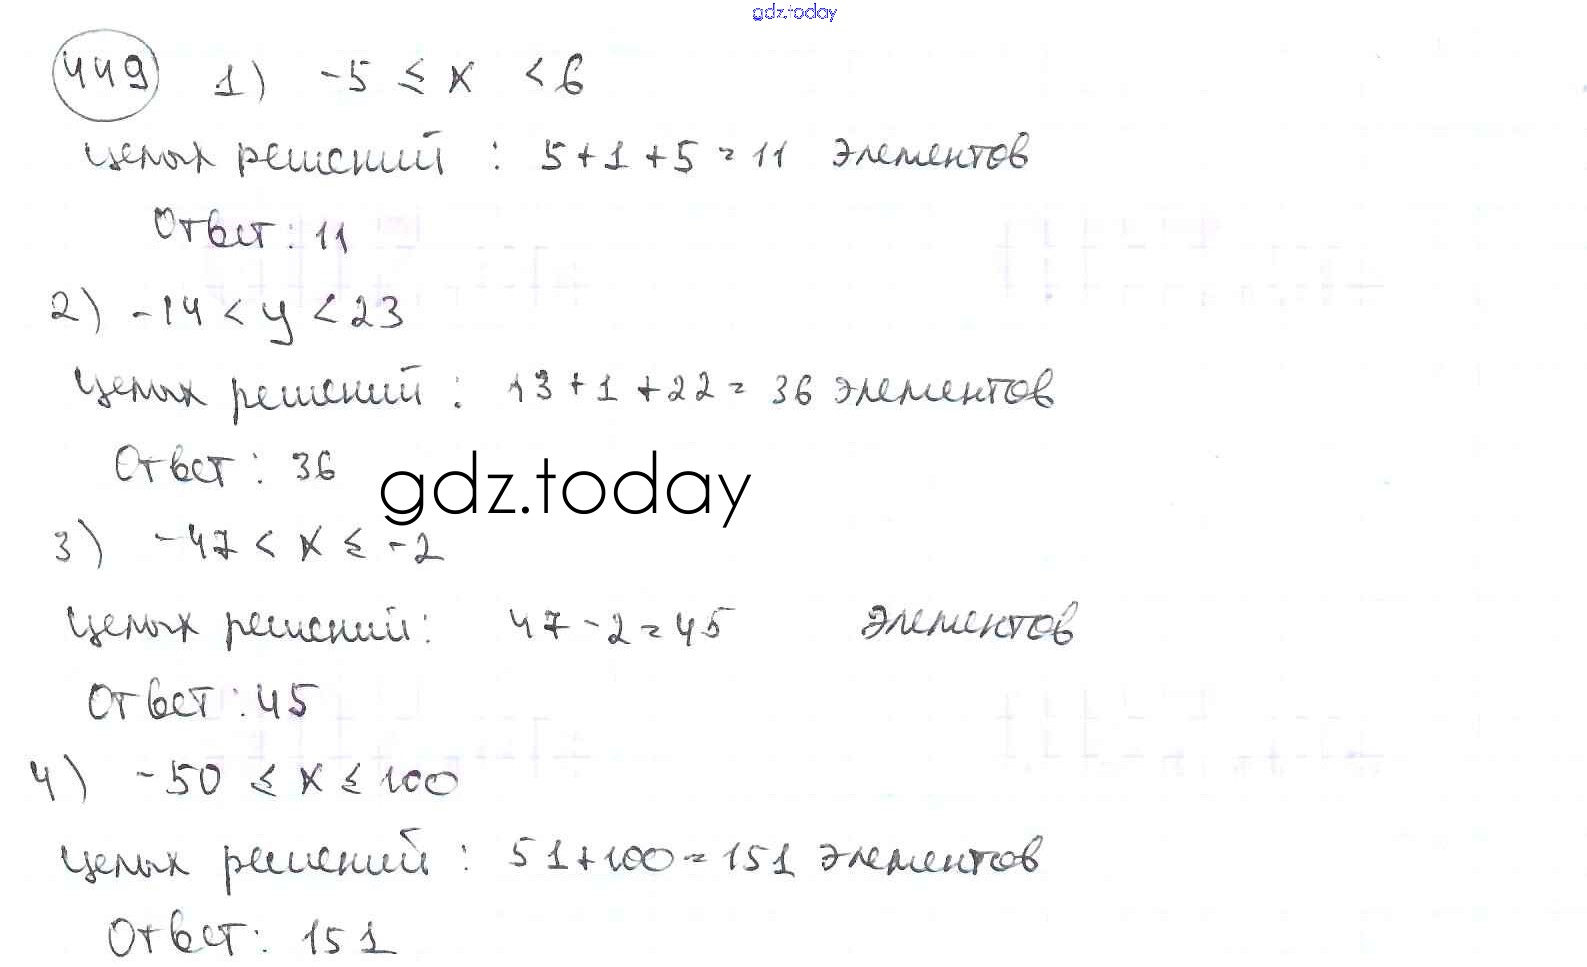 gdz.today
449 1) -5 ≤ x < 6
целых решений : 5+1+5=11 элементов
Ответ: 11
2) -14 < y < 23
целых решений : 13+1+22=36 элементов
Ответ: 36
gdz.today
3) -47 < x ≤ -2
целых решений: 47-2=45 элементов
Ответ: 45
4) -50 ≤ x ≤ 100
целых решений : 51+100=151 элементов
Ответ: 151